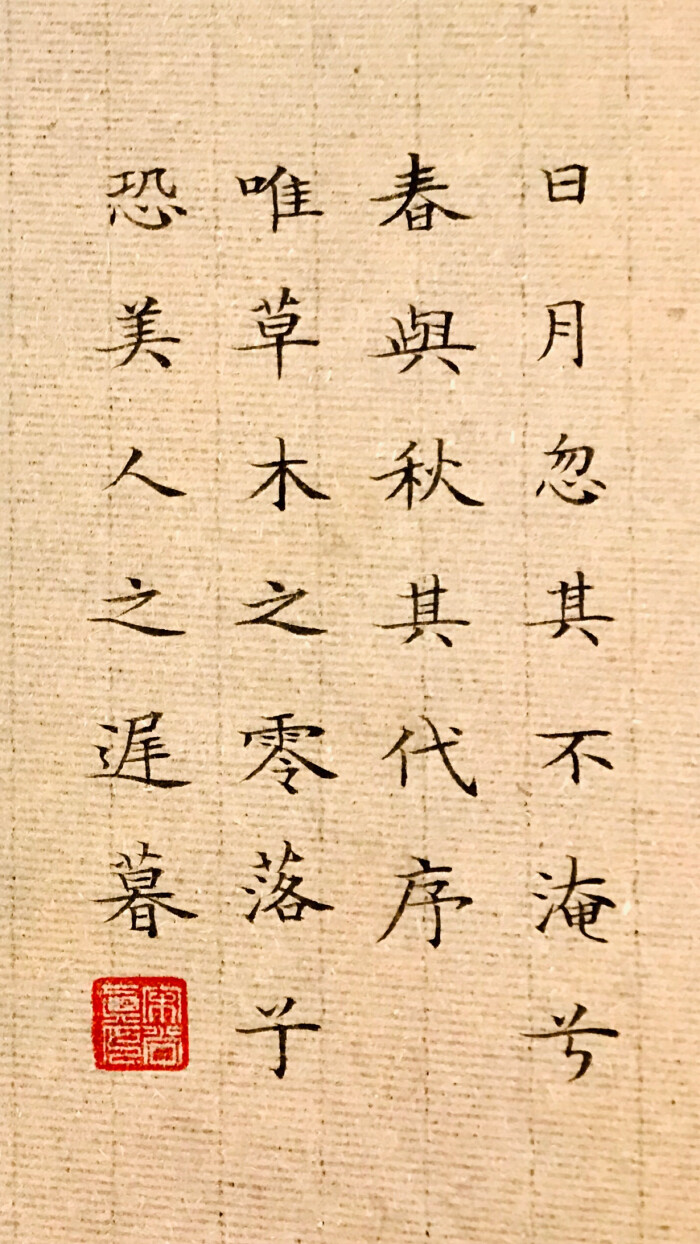 日月忽其不淹兮
春與秋其代序
唯草木之零落兮
恐美人之遅暮